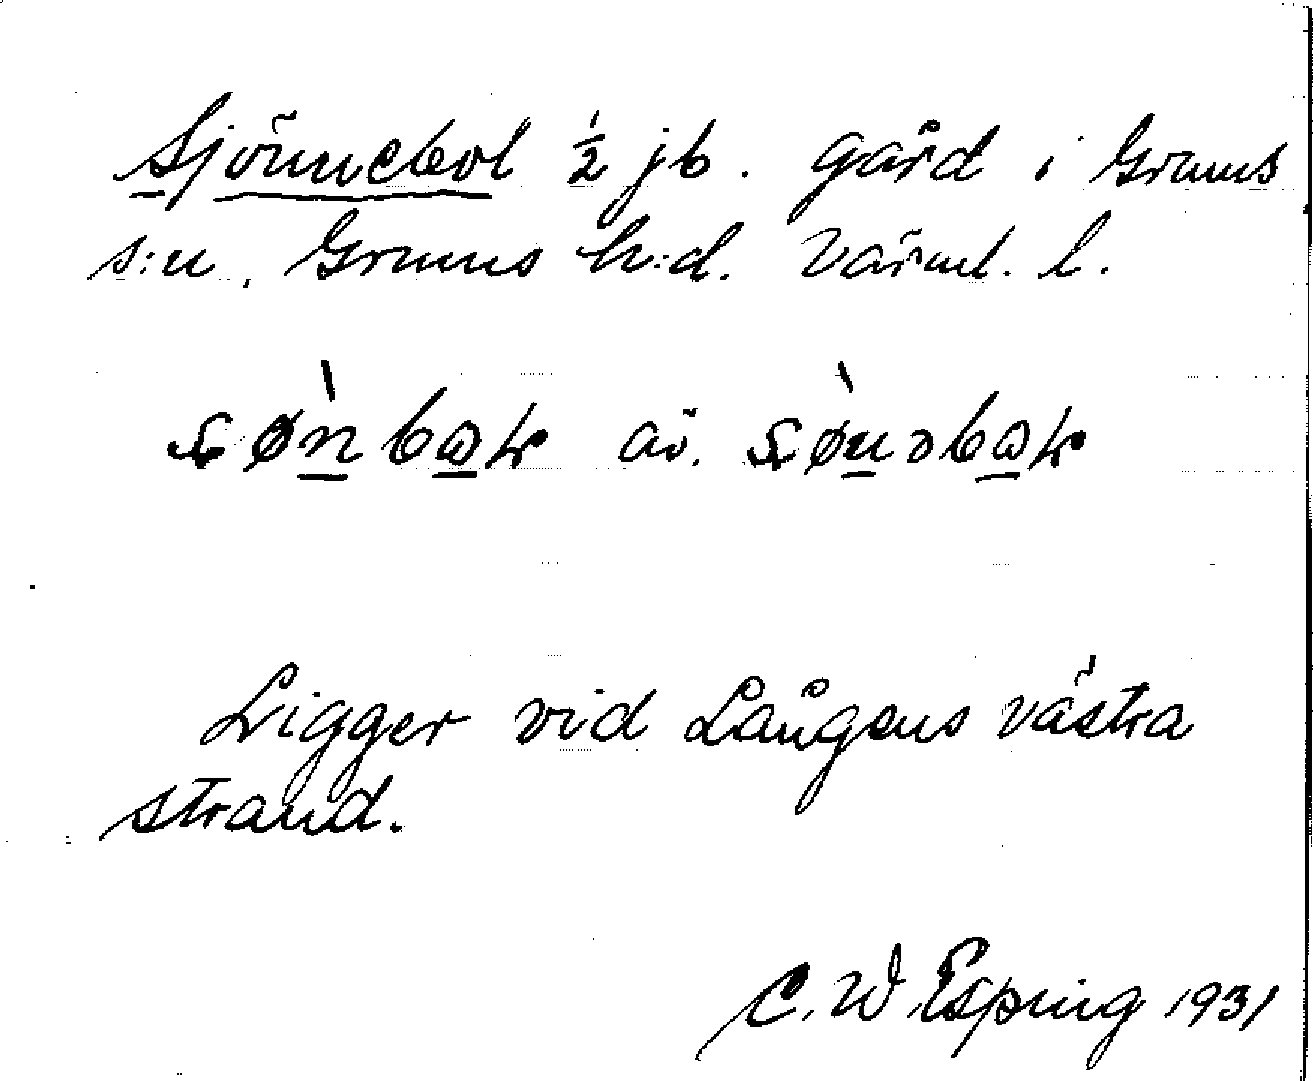 Sjönnebol ½ jb. gård i Grums
s:n, Grums h:d. Värml. l.
av.
Ligger vid Långens västra
strand.
C. W Esping 1931